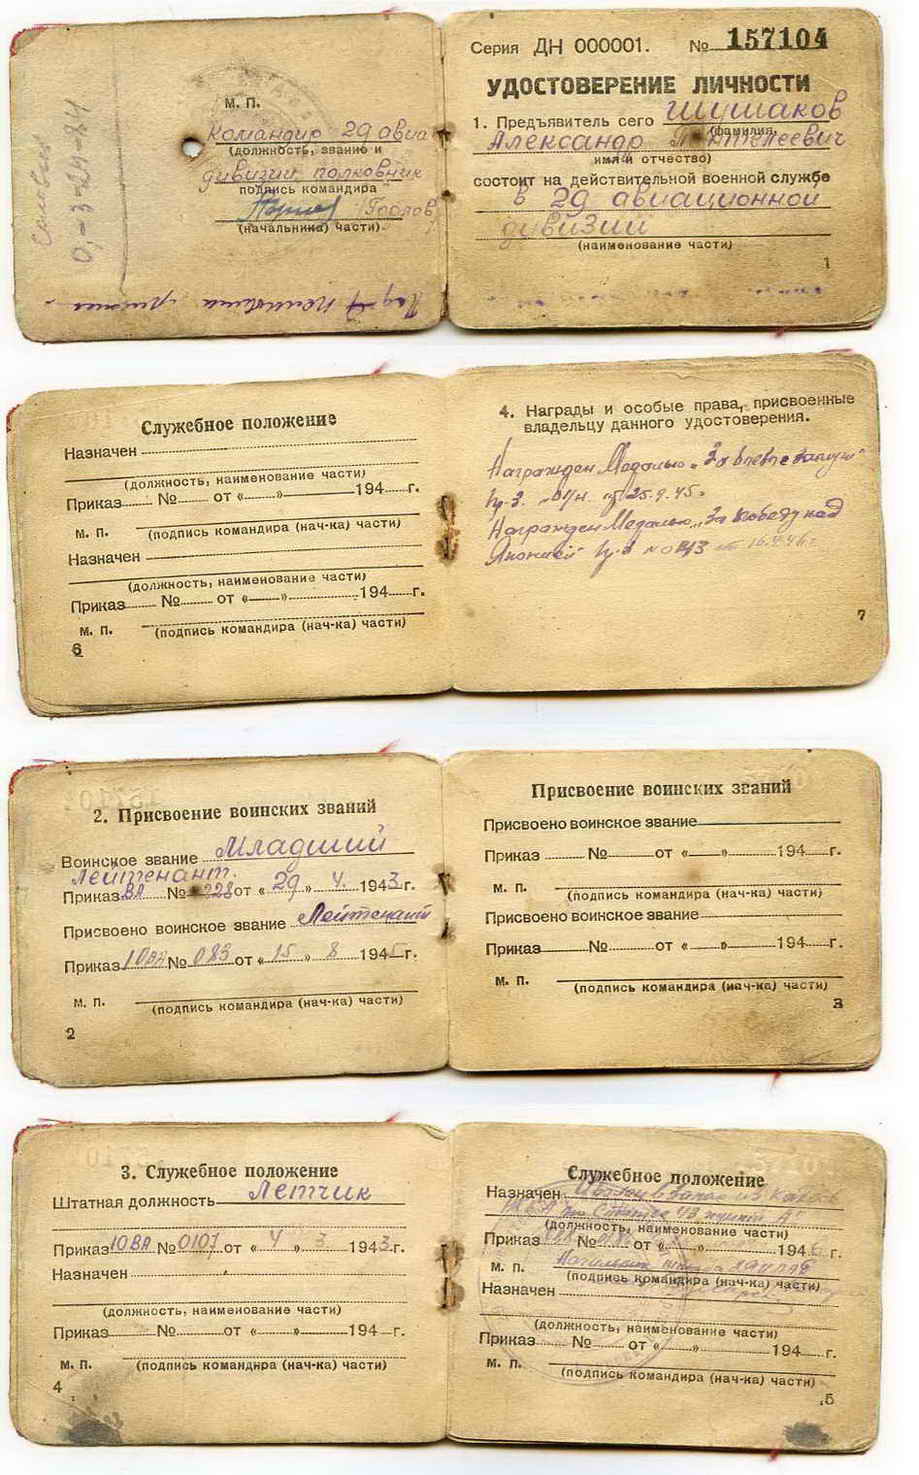 М. П.
Командир 29 авиа
(должность, звание и
дивизии полковник
подпись командира
(начальника) части).
0,-3-24-84
Серия ДН 000001. № 157104
УДОСТОВЕРЕНИЕ ЛИЧНОСТИ
1. Предъявитель сего Шушаков
(фамилия,
Александр Пантелеевич
имя и отчество)
состоит на действительной военной службе
в 29 авиационной
дивизии
(наименование части)
1
Служебное положение
Назначен
(должность, наименование части)
Приказ № от « » 194 г.
м. п. (подпись командира (нач-ка) части)
Назначен
(должность, наименование части)
Приказ № от « » 194 г.
м. п. (подпись командира (нач-ка) части)
6
4. Награды и особые права, присвоенные
владельцу данного удостоверения.
Награжден Медалью „За боевые заслуги“
Пр-з. 25.9.45.
Награжден Медалью „За победу над
Японией“ Пр-з
7
2. Присвоение воинских званий
Воинское звание Младший
Лейтенант.
Приказ ВА № 228 от « 29 » 4. 1943 г.
Присвоено воинское звание Лейтенант
Приказ 10ВА № 083 от « 15 » 8 1945 г.
м. п. (подпись командира (нач-ка) части)
2
Присвоение воинских званий
Присвоено воинское звание
Приказ № от « » 194 г.
м. п. (подпись командира (нач-ка) части)
Присвоено воинское звание
Приказ № от « » 194 г.
м. п. (подпись командира (нач-ка) части)
3
3. Служебное положение
Штатная должность Летчик
Приказ 10ВА № 0107 от « 4 » 3 1943 г.
Назначен
(должность, наименование части)
Приказ № от « » 194 г.
м. п. (подпись командира (нач-ка) части)
4
Служебное положение
Назначен Уволен в запас из кадров
(должность, наименование части)
Приказ № от « » 1946 г.
м. п. Начальник штаба
(подпись командира (нач-ка) части)
Назначен
(должность, наименование части)
Приказ № от « » 194 г.
м. п. (подпись командира (нач-ка) части)
5